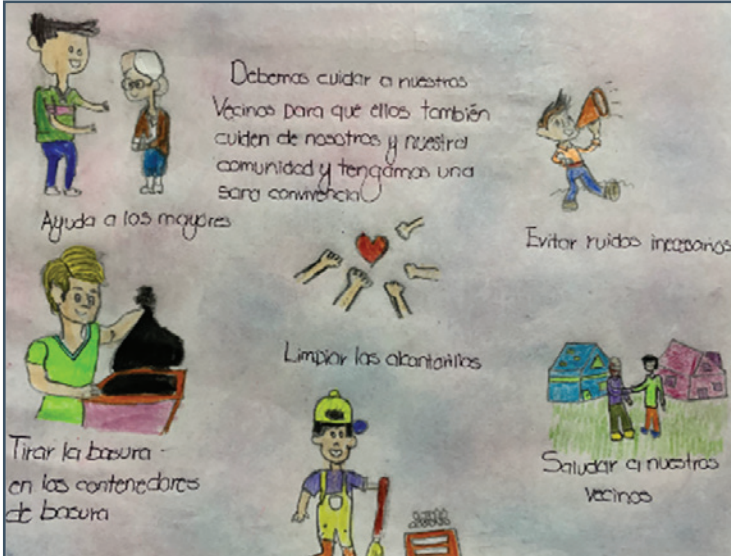 Debemos cuidar a nuestros
Vecinos para que ellos también
cuiden de nosotros y nuestra
comunidad y tengamos una
sana convivencia
Ayuda a los mayores
Evitar ruidos inecesarios
Limpiar las alcantarillas
Tirar la basura
en los contenedores
de basura
Saludar a nuestros
vecinos